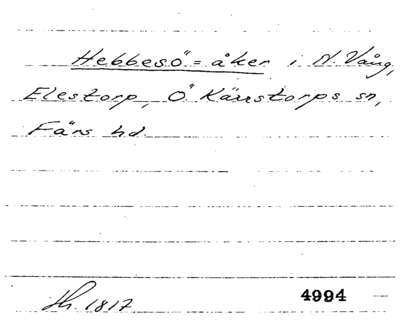 Hebbesö = åker i N. Vång,
Elestorp, Ö Kärrstorps sn,
Färs hd.
Sh. 1817
4994